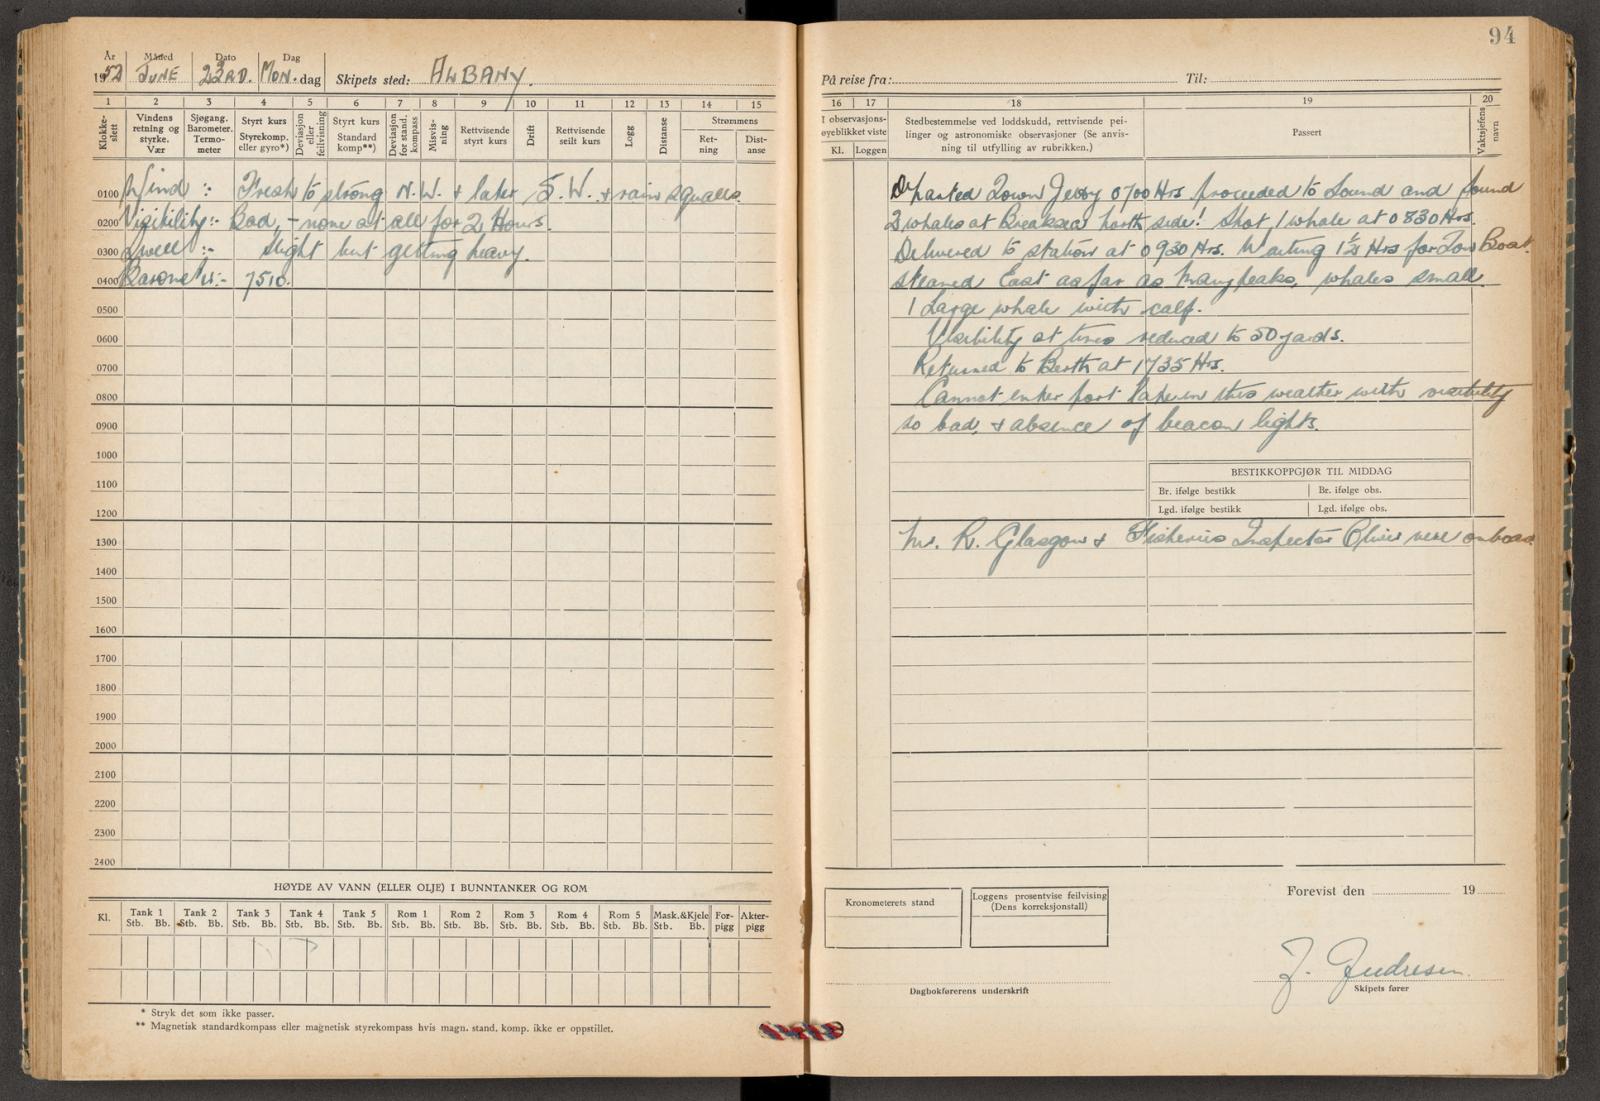 94
År Måned Dato Dag
1952 JUNE 23RD. MON. dag Skipets sted: ALBANY.
1 2 3 4 5 6 7 8 9 10 11 12 13 14 15
Klokke-slett
Vindens retning og styrke. Vær
Sjøgang. Barometer. Termo-meter
Styrt kurs Styrekomp. eller gyro*)
Deviasjon eller feilvisning
Styrt kurs Standard komp**)
Deviasjon for stand. kompass
Misvis-ning
Rettvisende styrt kurs
Drift
Rettvisende seilt kurs
Logg
Distanse
Strømmens
Ret-ning
Dist-anse
0100 Wind :- Fresh to strong N.W. + later S.W. + rain squalls.
0200 Visibility:- Bad, - none at all for 2 Hours.
0300 Swell :- Slight but getting heavy.
0400 Barometer:- 7510.
0500
0600
0700
0800
0900
1000
1100
1200
1300
1400
1500
1600
1700
1800
1900
2000
2100
2200
2300
2400
HØYDE AV VANN (ELLER OLJE) I BUNNTANKER OG ROM
Kl. Tank 1 Tank 2 Tank 3 Tank 4 Tank 5 Rom 1 Rom 2 Rom 3 Rom 4 Rom 5 Mask.&Kjele For-pigg Akter-pigg
Stb. Bb. Stb. Bb. Stb. Bb. Stb. Bb. Stb. Bb. Stb. Bb. Stb. Bb. Stb. Bb. Stb. Bb. Stb. Bb. Stb. Bb.
* Stryk det som ikke passer.
** Magnetisk standardkompass eller magnetisk styrekompass hvis magn. stand. komp. ikke er oppstillet.
På reise fra: Til:
16 17 18 19 20
I observasjons-øyeblikket viste
Kl. Loggen
Stedbestemmelse ved loddskudd, rettvisende pei-
linger og astronomiske observasjoner (Se anvis-
ning til utfylling av rubrikken.)
Passert
Vaktsjefens navn
Departed Town Jetty 0700 Hrs. proceeded to Sound and found
2 whales at Breaksea north side! Shot 1 whale at 0830 Hrs.
Delivered to station at 0930 Hrs. Waiting 1½ Hrs for Tow Boat.
steamed East as far as Manypeaks, whales small.
1 Large whale with calf.
Visibility at times reduced to 50 yards.
Returned to Berth at 1735 Hrs.
Cannot enter port later in this weather with visibility
so bad, + absence of beacon lights.
BESTIKKOPPGJØR TIL MIDDAG
Br. ifølge bestikk Br. ifølge obs.
Lgd. ifølge bestikk Lgd. ifølge obs.
Mr. R. Glasgow + Fisheries Inspector were onboard
Kronometerets stand
Loggens prosentvise feilvising
(Dens korreksjonstall)
Forevist den 19
Dagbokførerens underskrift
Skipets fører